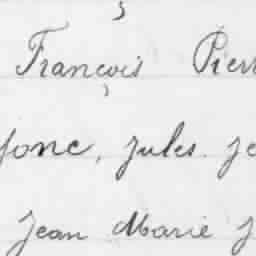 François Pierr
fonc, Jules Je
Jean Marie J